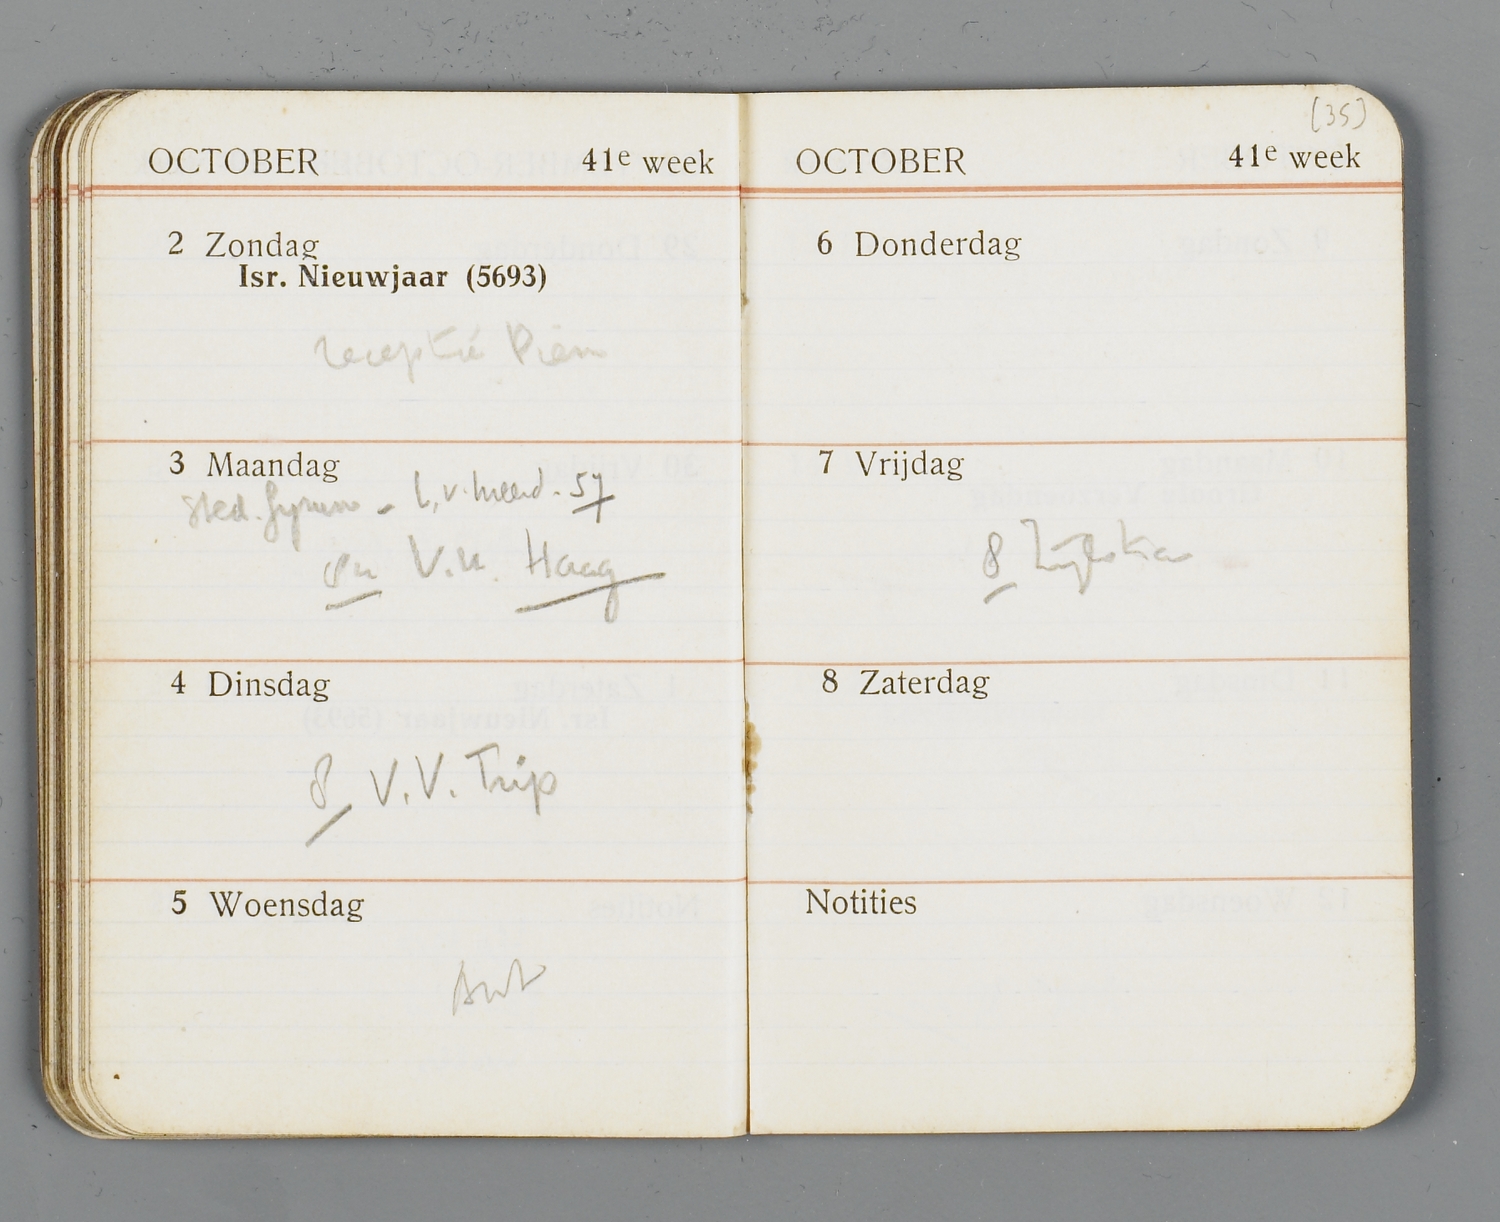 OCTOBER 41e week
2 Zondag
Isr. Nieuwjaar (5693)
receptie
3 Maandag
sted. - 57
V.u. Haag
4 Dinsdag
8 V.V. Trip
5 Woensdag
[35]
OCTOBER 41e week
6 Donderdag
7 Vrijdag
8
8 Zaterdag
Notities